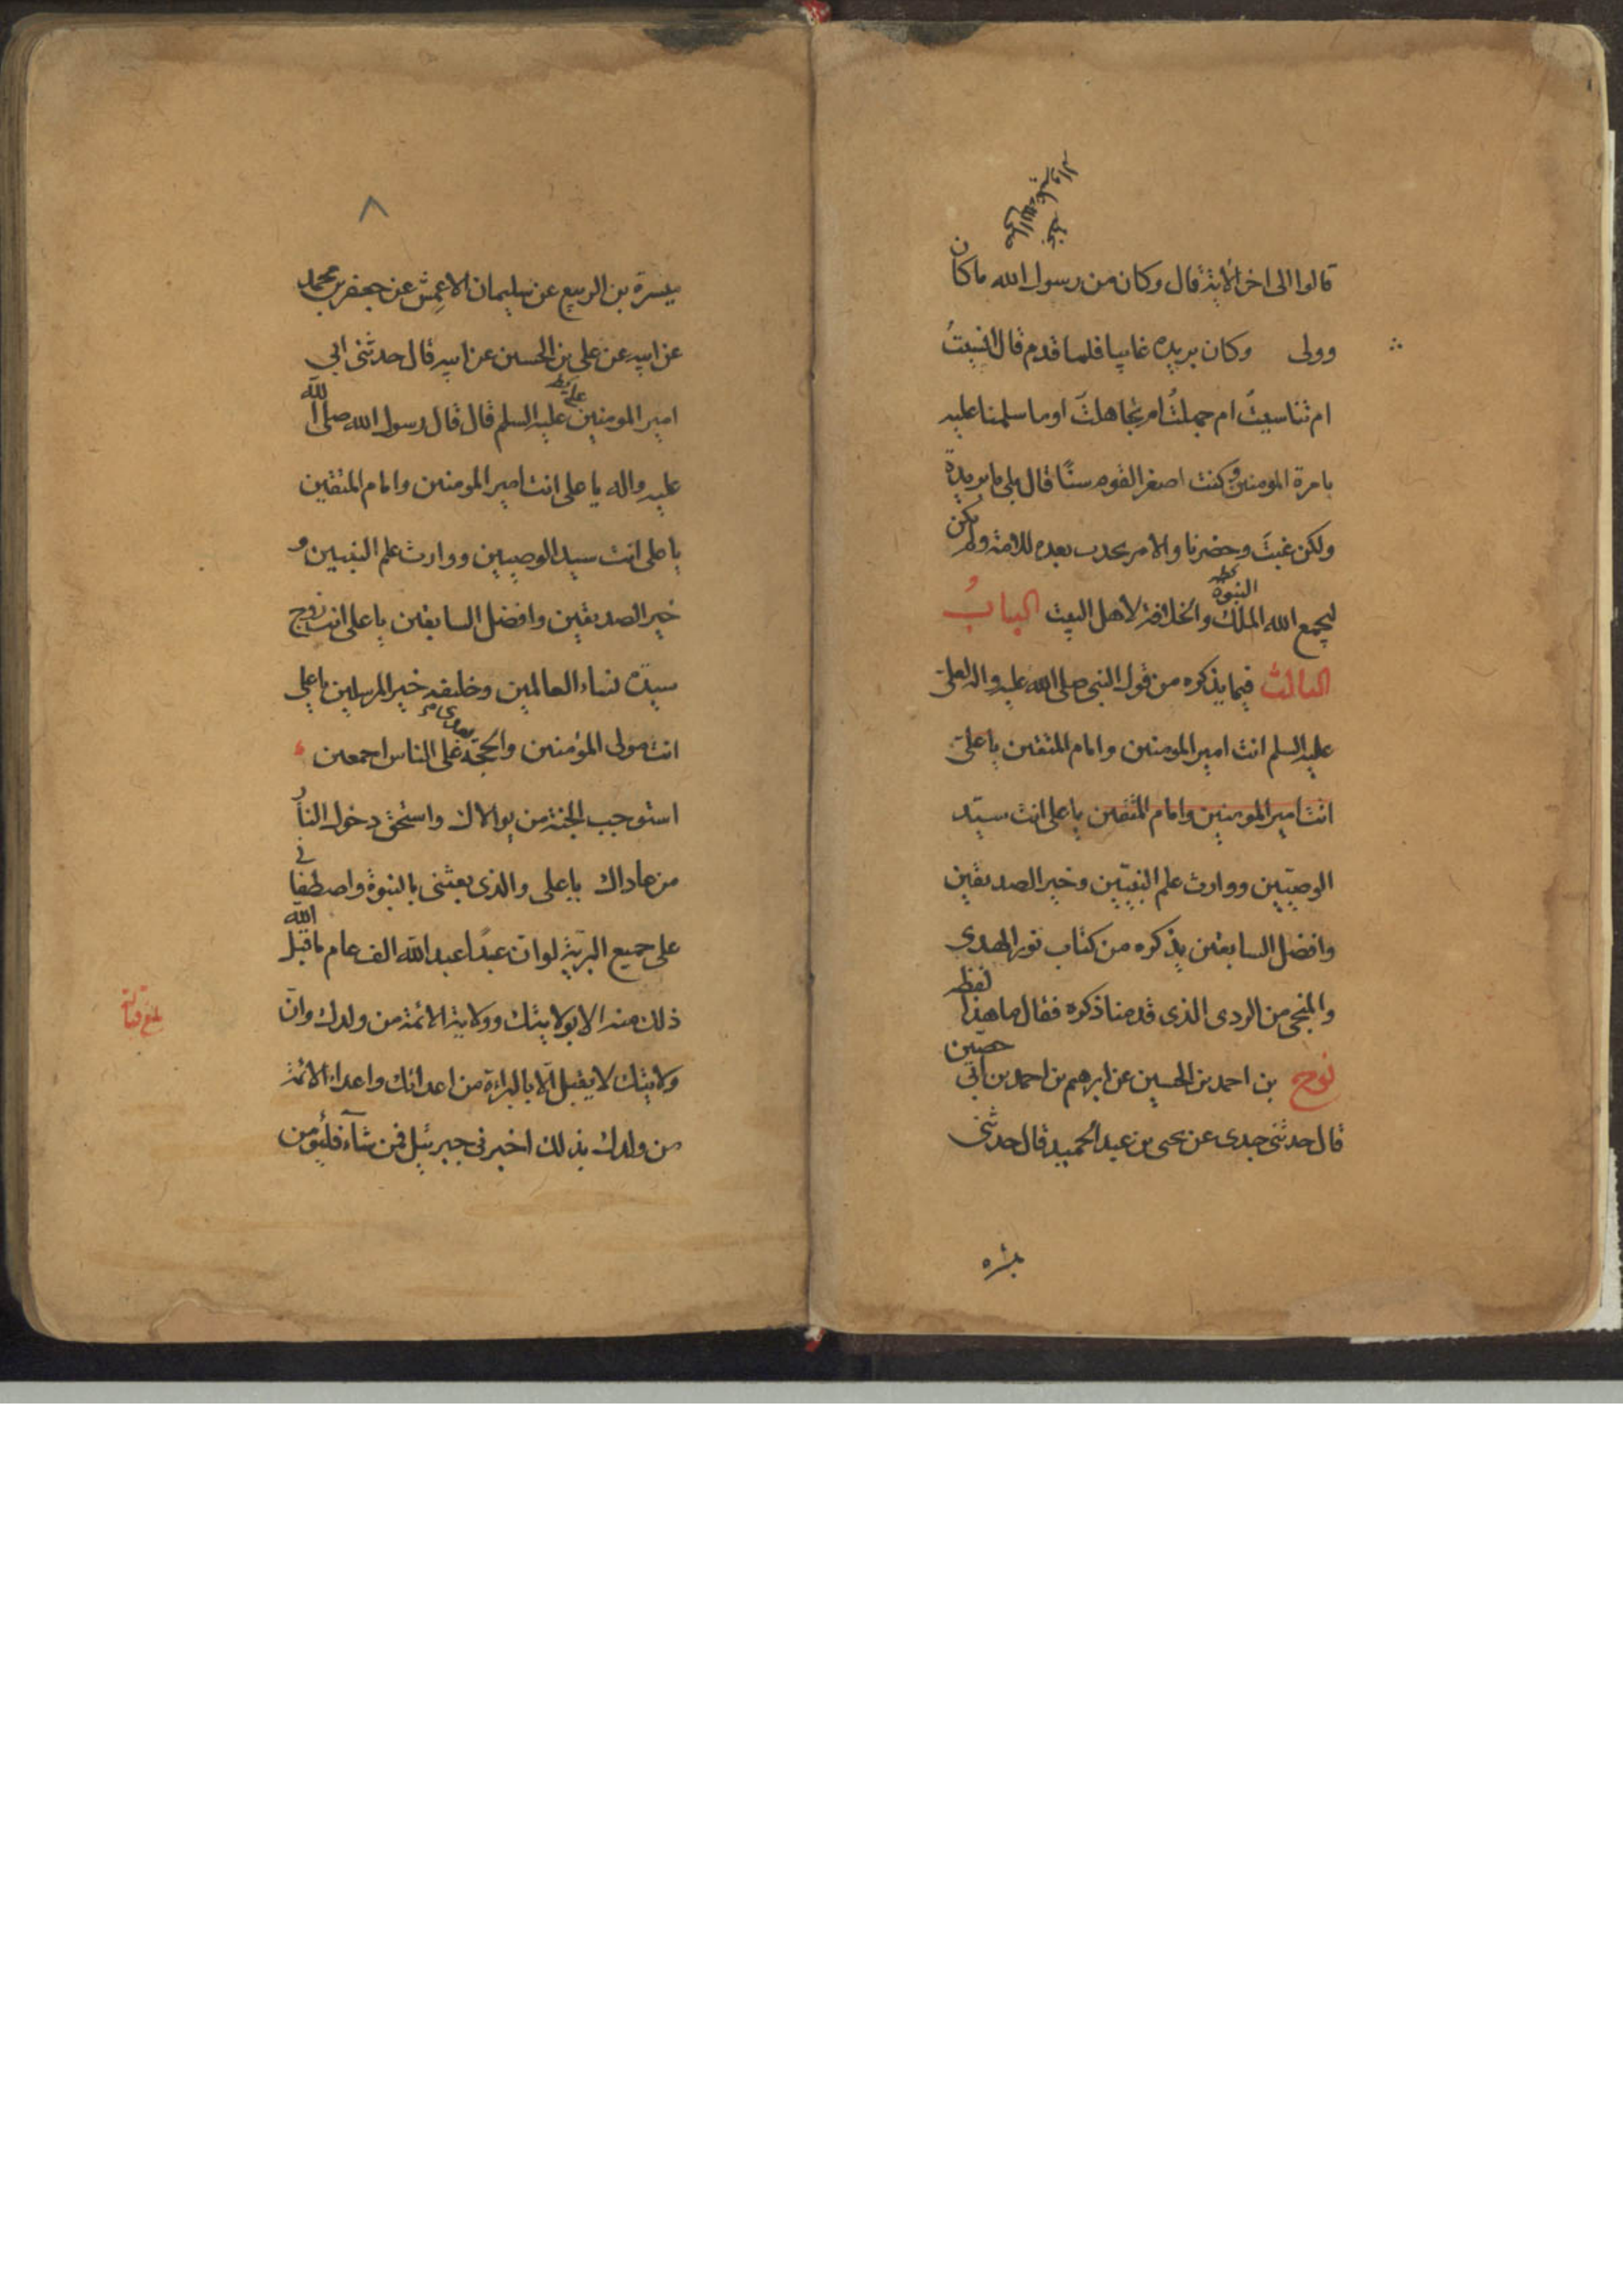 قالوا الى اخر الآية قال وكان من رسول الله ما كان
وولى وكان بريده غايبا فلما قدم قال انسيتُ
ام تناسيتُ ام جهلتُ ام تجاهلتَ اوما سلمنا عليه
بامرة المومنين وكنت اصغر القوم سنًا قال بلى يا بريدة
ولكن غبتَ وحضرنا والامر يحدث بعده للامة ولم يكن
النبوة
ليجمع الله الملك والخلافة لاهل البيت البابُ
الثالث فيما يذكره من قول النبى صلى الله عليه واله لعلى
عليه السلم انت امير المومنين وامام المتقين يا على
انت امير المومنين وامام المتقين يا على انت سيّد
الوصيّين ووارث علم النبيّين وخير الصديقين
وافضل السابقين يذكره من كتاب نور الهدى
والمنجى من الردى الذى قدمنا ذكره فقال ما هذا لفظه
نوح بن احمد بن الحسين عن ابرهيم بن احمد بن ابى حصين
قال حدثنى جدى عن يحيى بن عبد الحميد قال حدثنى
ميسرة بن الربيع عن سليمان الاعمش عن جعفر بن محمد
عن ابيه عن على بن الحسين عن ابيه قال حدثنى ابى
امير المومنين على عليه السلم قال قال رسول الله صلى الله
عليه واله يا على انت امير المومنين وامام المتقين
يا على انت سيد الوصيين ووارث علم النبيين و
خير الصديقين وافضل السابقين يا على انت زوج
سيدة نساء العالمين وخليفة خير المرسلين يا على
انت مولى المؤمنين والحجة على الناس اجمعين
استوجب الجنة من يوالاك واستحق دخول النار
من عاداك يا على والذى بعثنى بالنبوة واصطفانى
على جميع البريّة لو ان عبدًا عبد الله الف عام ما قبل الله
ذلك منه الا بولايتك وولاية الائمة من ولدك وان
ولايتك لا يقبل الّا بالبراءة من اعدائك واعداء الائمة
من ولدك بذلك اخبرنى جبرئيل فمن شآء فليؤمن